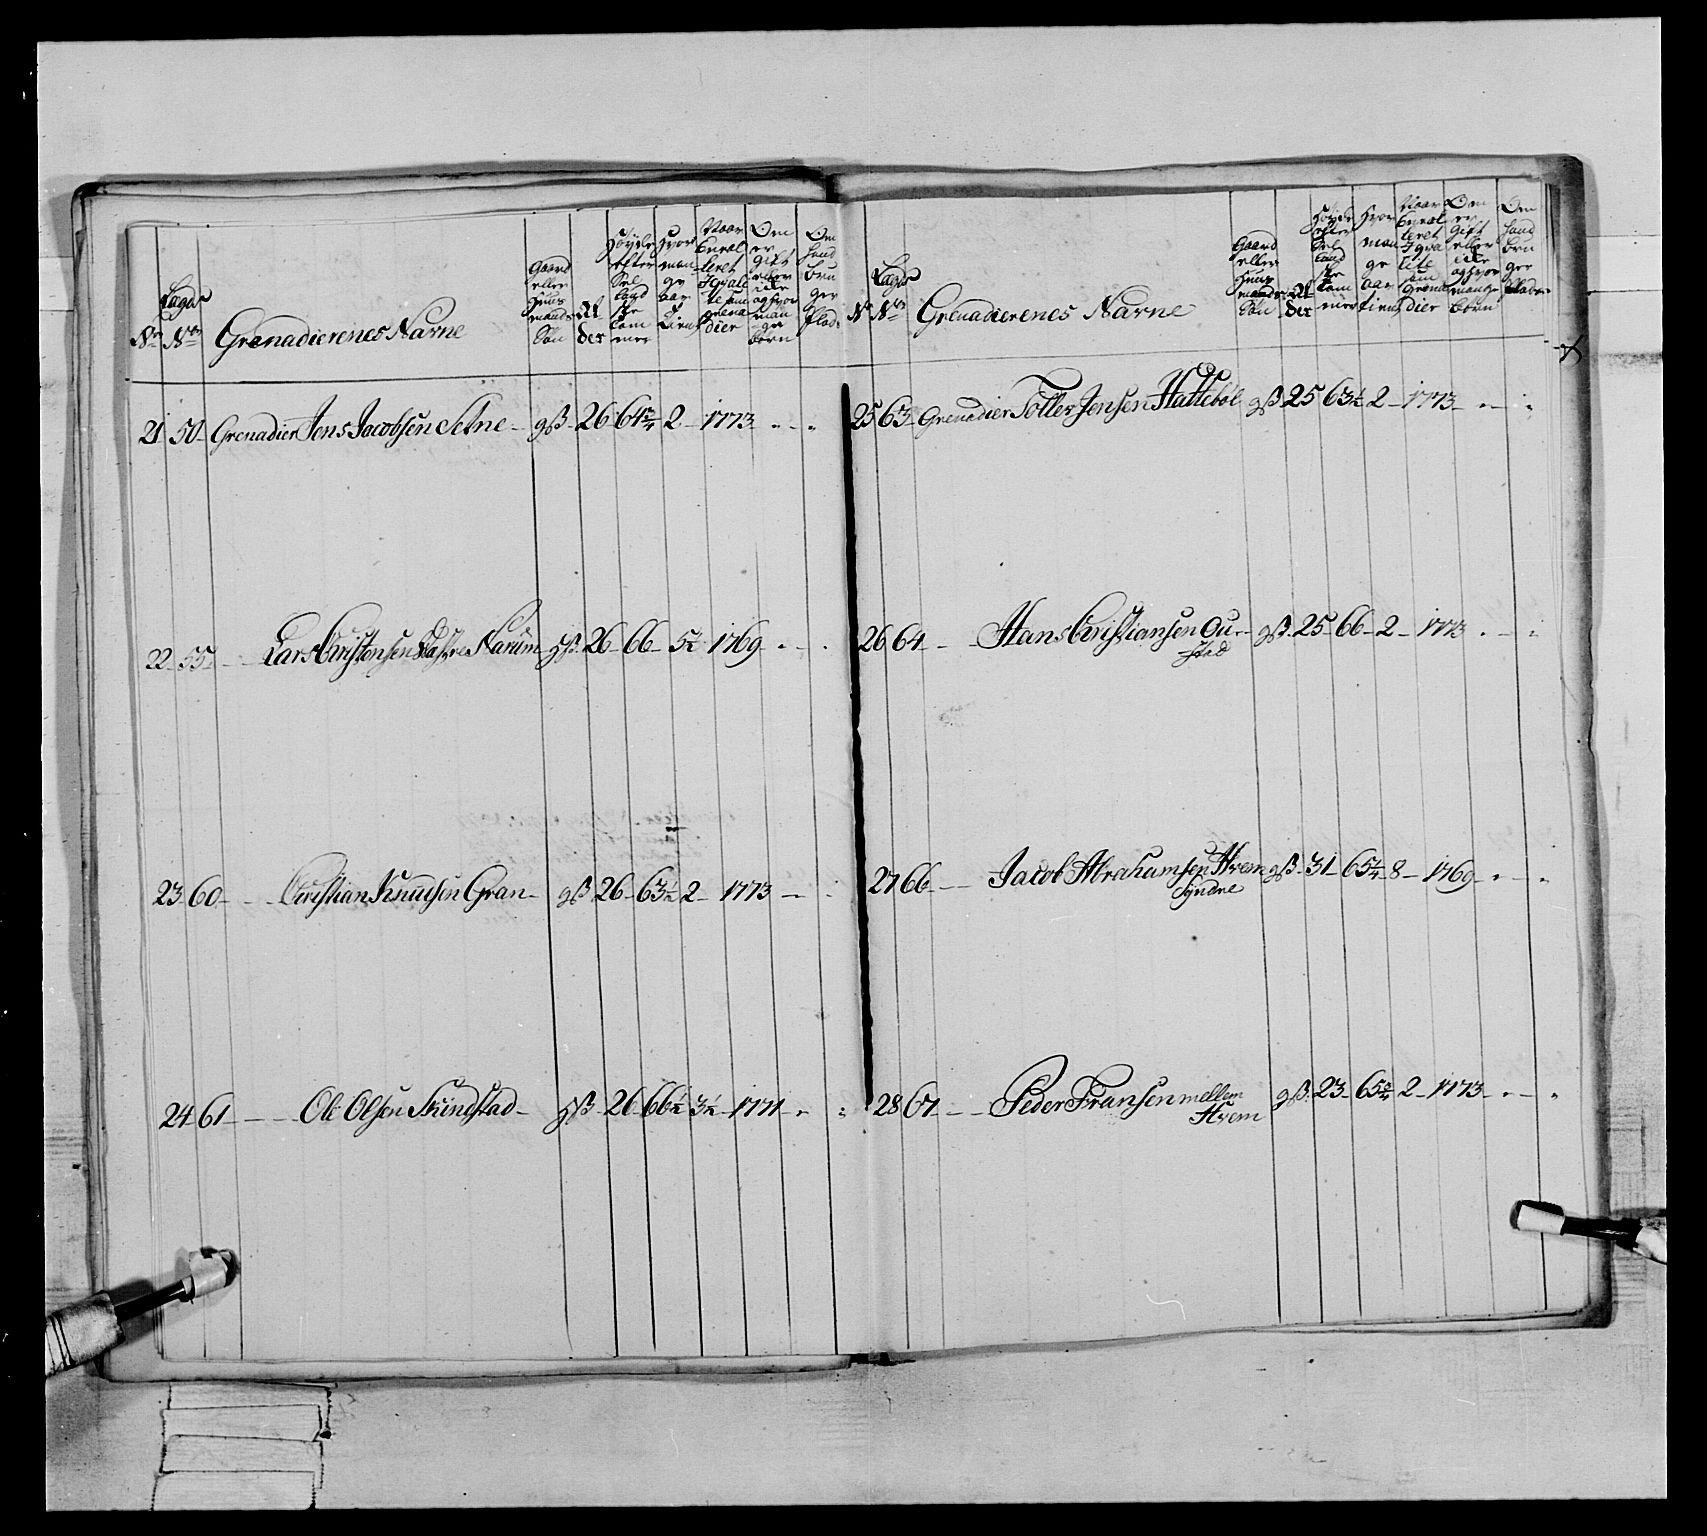 Nr Lægds Nr Grenadierenes Nafne Gaard eller Huusmands Søn Alder Høyde efter Sellandske tommer Hvor mange aar tient Naar Enrolleret Item som grenadier Om er Gift eller icke og hvor mange børn Om Land bru ger Plads
21 50 Grenadier Jens Jacobsen Setne gß 26 64 3/4 2 1773
22 55 Lars Christensen Narum gß 26 66 5 1/2 1769
23 60 Christian Knudsen Gran gß 26 63 1/2 2 1773
24 61 Ole Olsen Skindstad gß 26 66 1/2 3 1/2 1771
Nr Lægds Nr Grenadierenes Nafne Gaard eller Huus mands Søn Alder Høyde efter Sellandske tommer Hvor mange aar tient Naar Enrolleret som Grenadier Om er Gift eller icke og hvor mange børn Om Land bru ger Plads
25 63 Grenadier Toller Jensen Hattebøl gß 25 63 1/2 2 1773
26 64 Hans Christiansen Ou-
stad gß 25 66 2 1773
27 66 Jacob Abrahamsen Hvem
Syndre gß 31 65 1/4 8 1769
28 67 Peder Fransen mellem
Hvem gß 23 65 3/4 2 1773